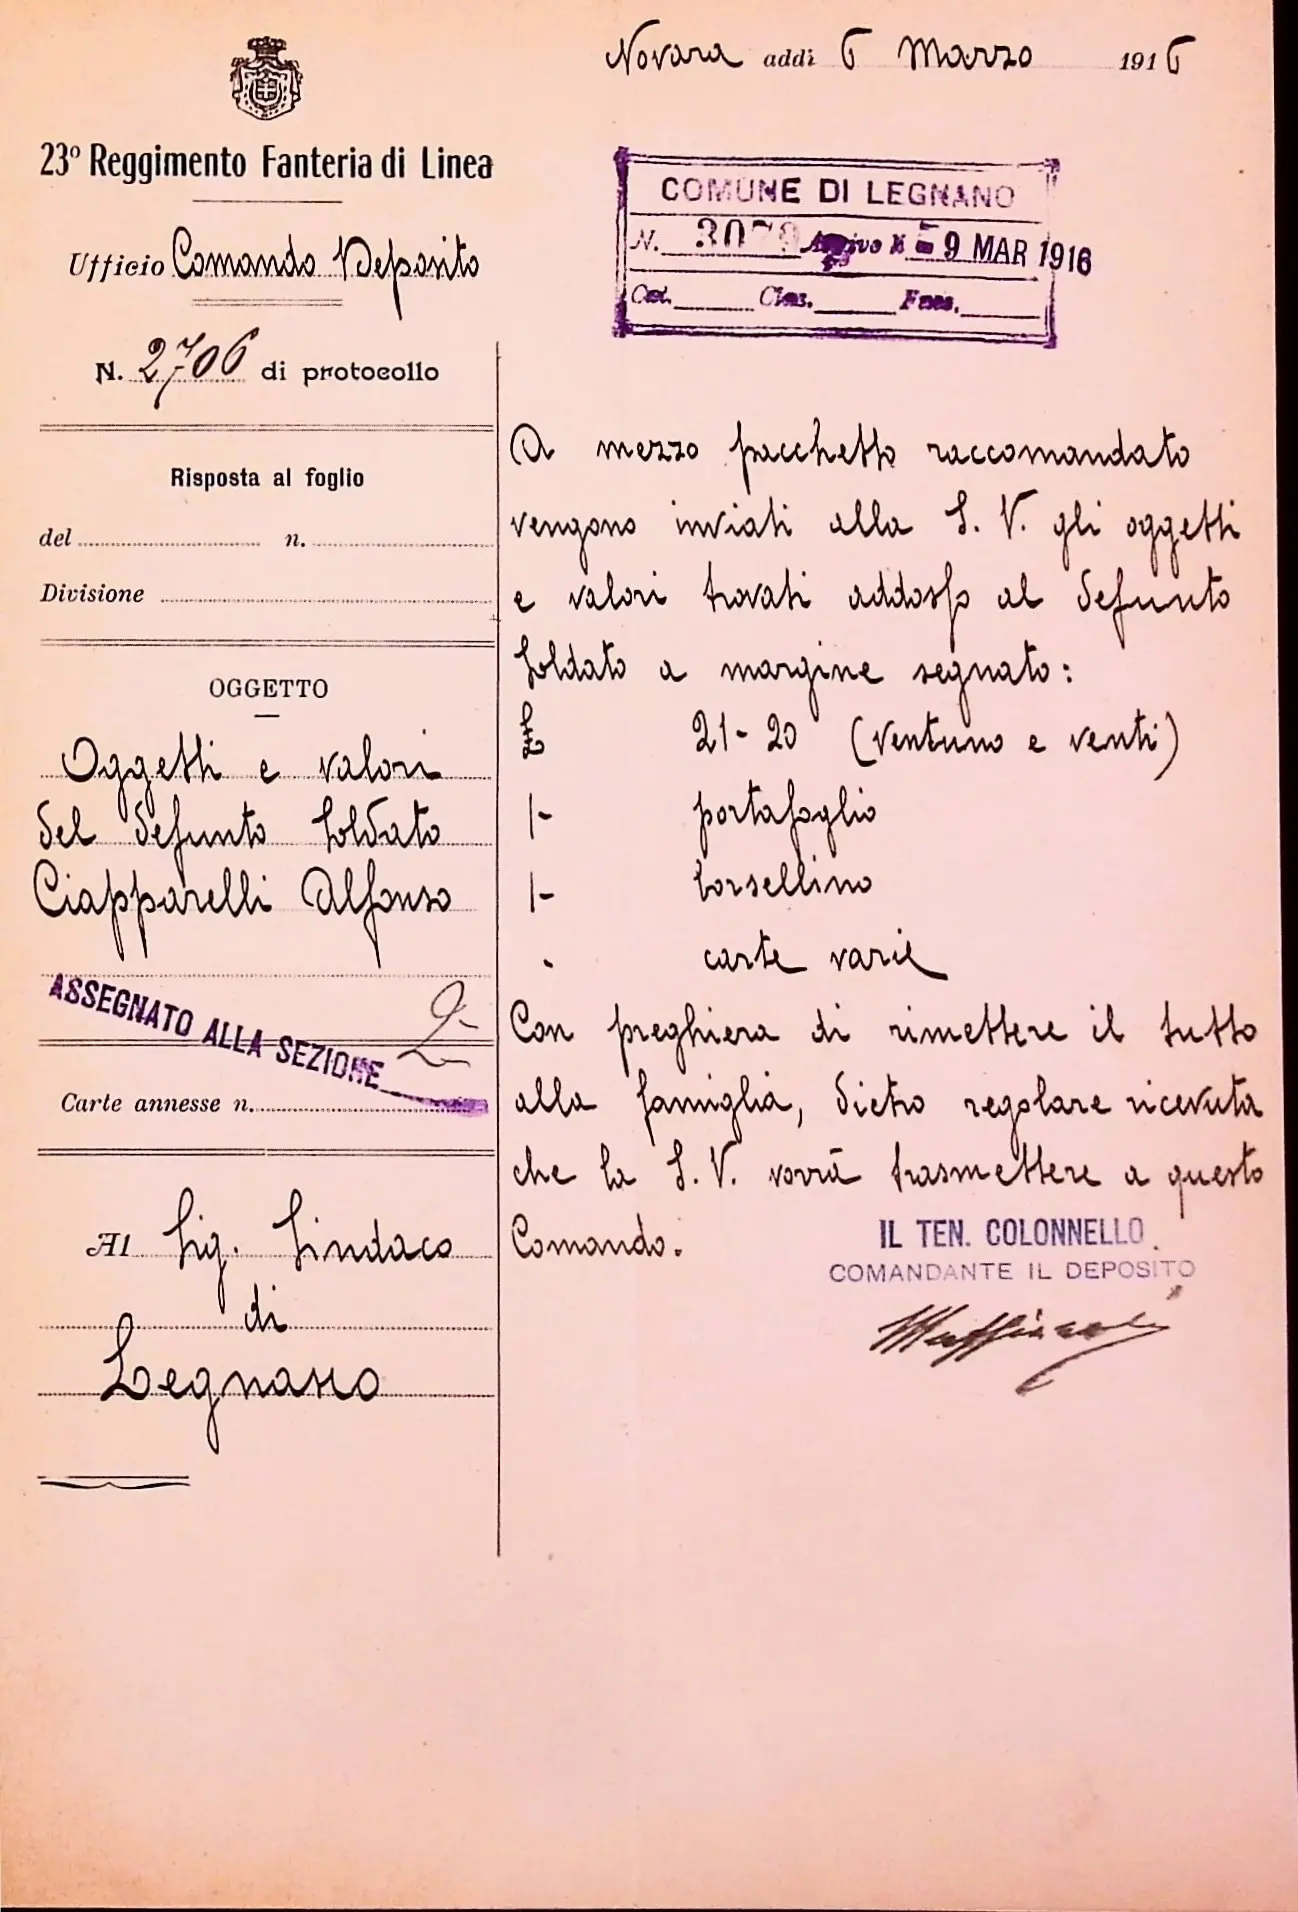 Novara addì 6 Marzo 1916
23º Reggimento Fanteria di Linea
Ufficio Comando Deposito
N. 2706 di protocollo
Risposta al foglio
del n.
Divisione
OGGETTO
Oggetti e valori
del defunto soldato
Ciapparelli Alfonso
ASSEGNATO ALLA SEZIONE 2
Carte annesse n.
Al Sig. Sindaco
di
Legnano
COMUNE DI LEGNANO
N. Arrivo li - 9 MAR 1916
Cat. Clas. Fasc.
A mezzo pacchetto raccomandato
vengono inviati alla S. V. gli oggetti
e valori trovati addosso al defunto
soldato a margine segnato:
21-20 (ventuno e venti)
1- portafoglio
1- borsellino
carte varie
Con preghiera di rimettere il tutto
alla famiglia, dietro regolare ricevuta
che la S. V. vorrà trasmettere a questo
Comando.
IL TEN. COLONNELLO
COMANDANTE IL DEPOSITO